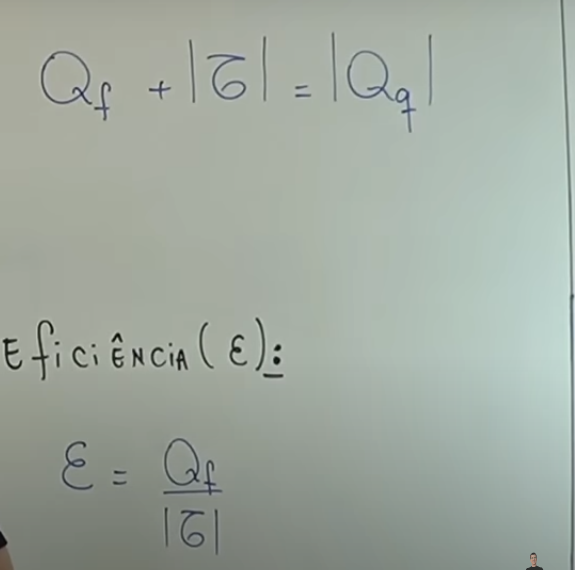 Qf + |τ| = |Qq|
Eficiência (ε):
ε = Qf
|τ|